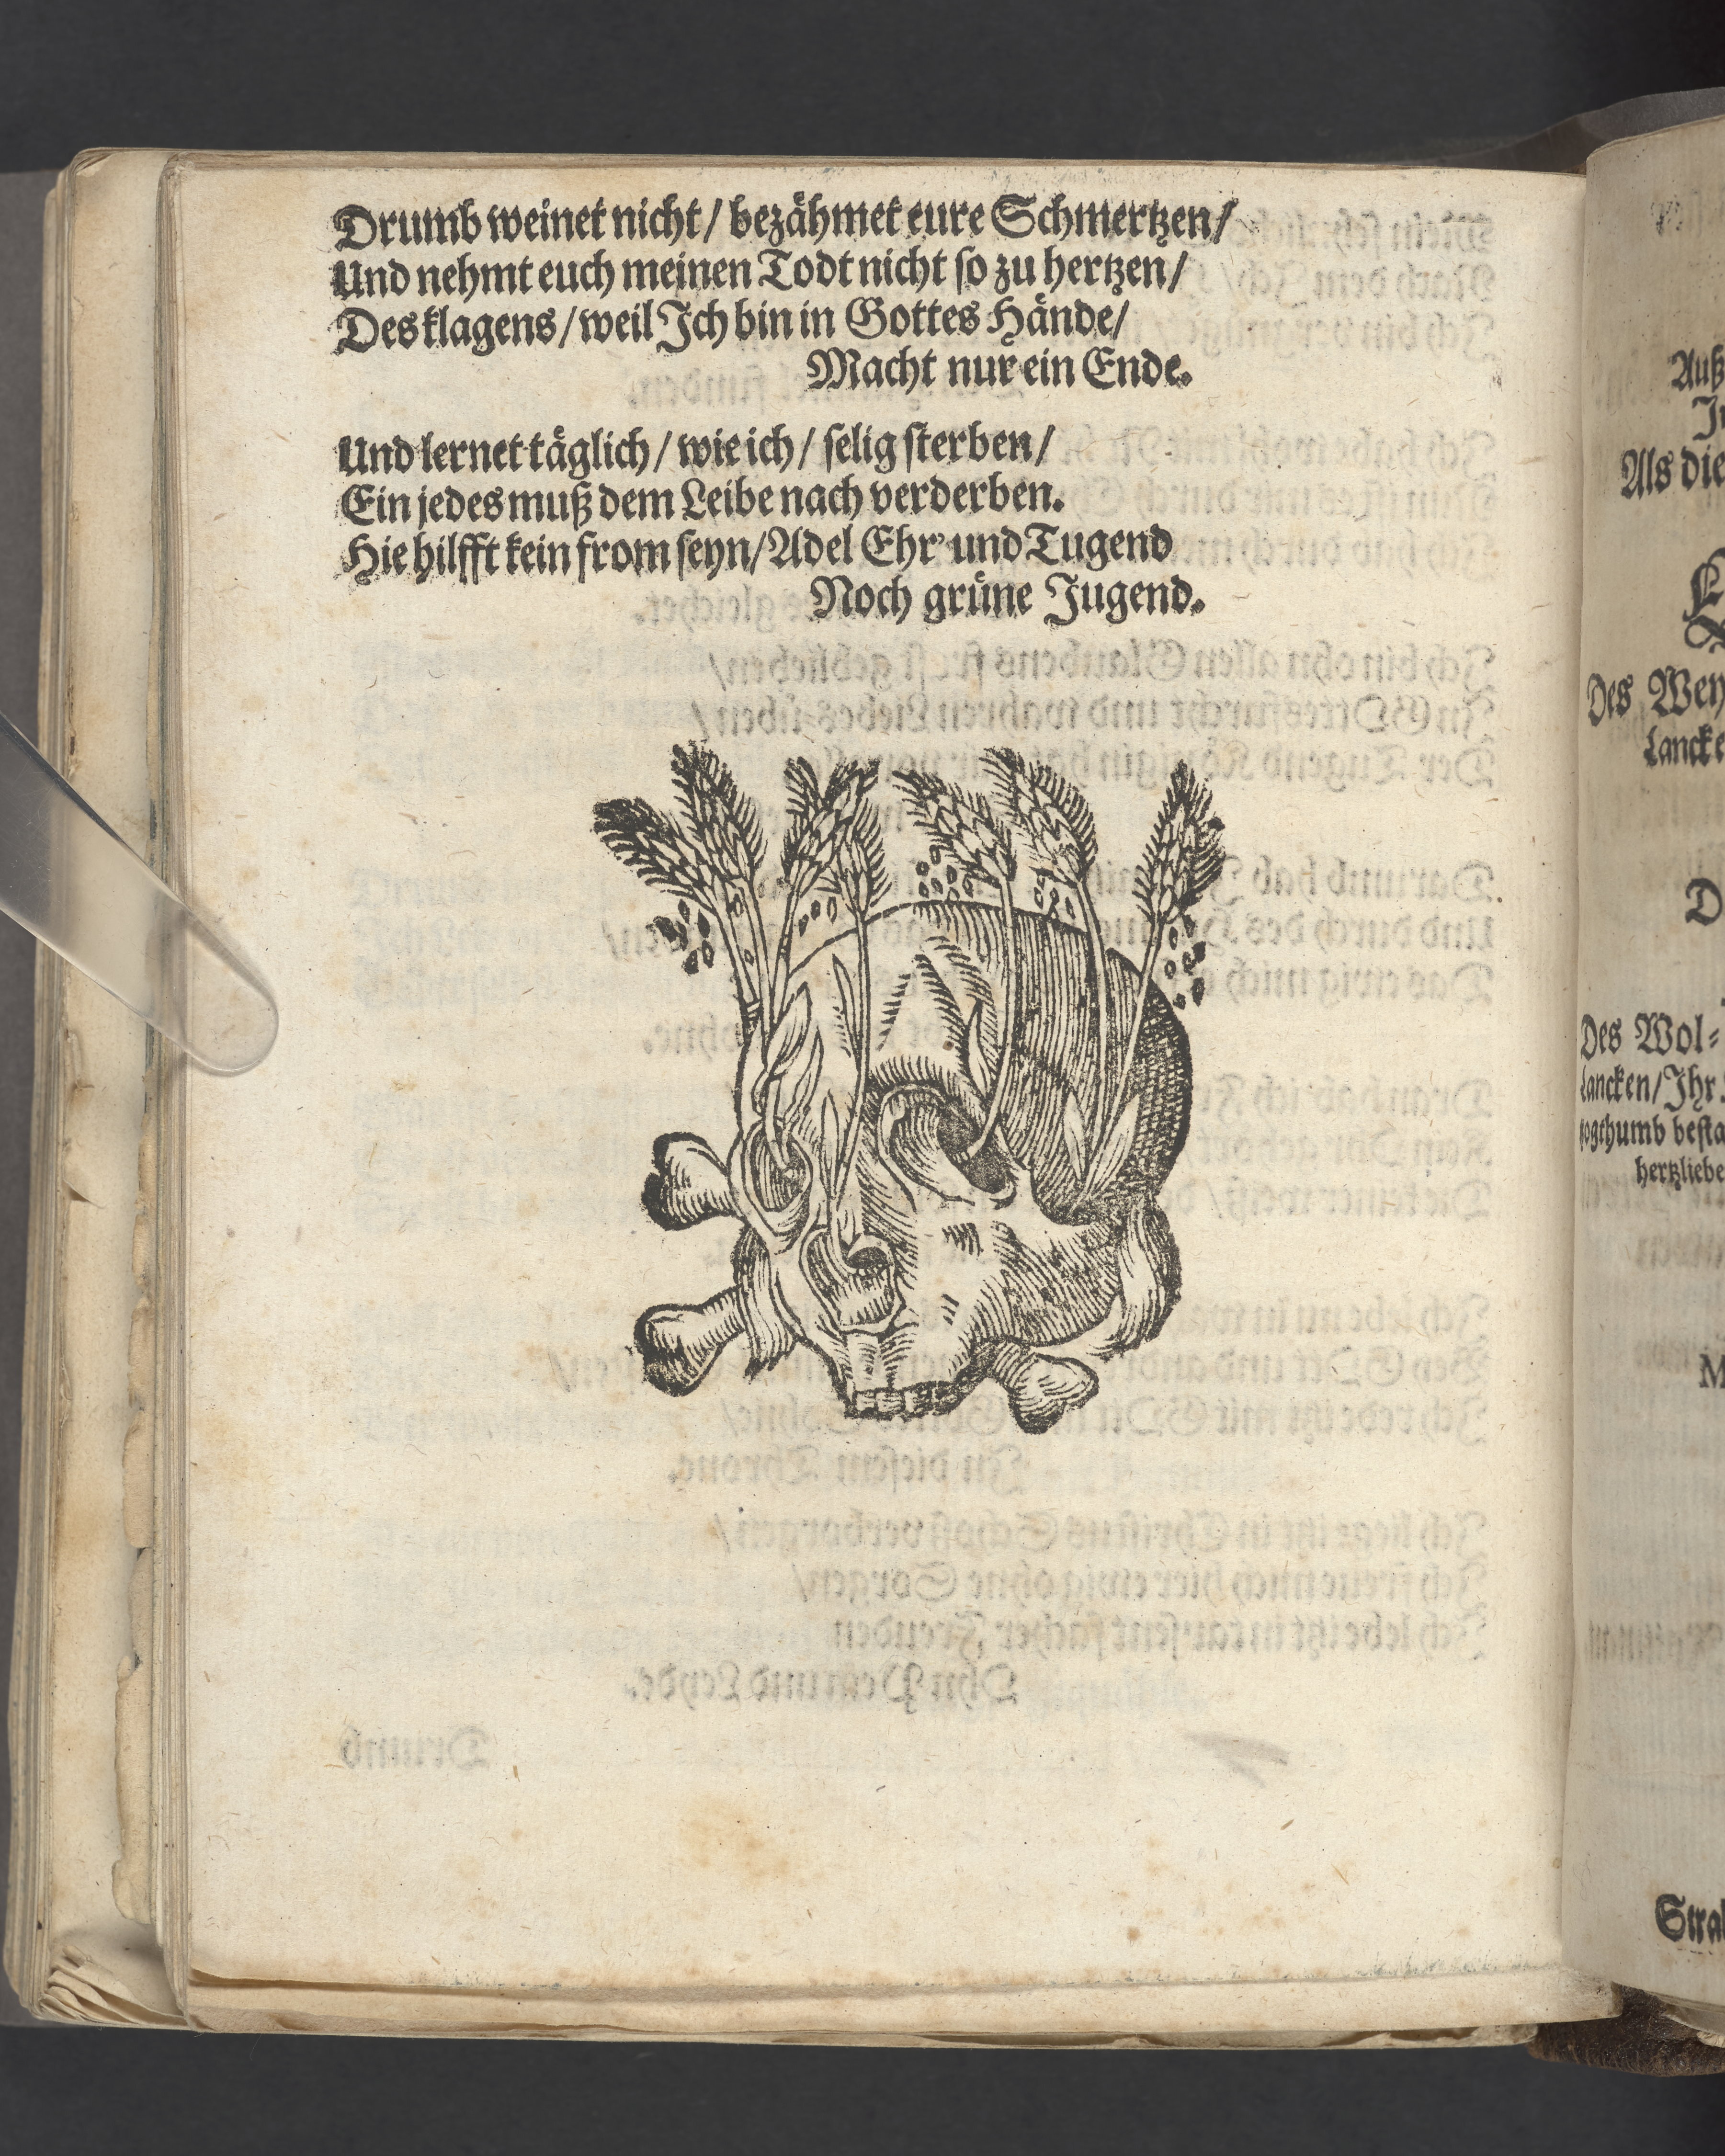 Drumb weinet nicht / bezähmet eure Schmertzen /
Und nehmt euch meinen Todt nicht so zu hertzen /
Des klagens / weil Ich bin in Gottes Hände /
Macht nur ein Ende.
Und lernet täglich / wie ich / selig sterben /
Ein jedes muß dem Leibe nach verderben.
Hie hilfft kein from seyn / Adel Ehr' und Tugend
Noch grüne Jugend.
Auß
Als die
Des Wey
Lancke
D
Des Wol-
Lancken / Ihr
hertzliebe
M
Stral